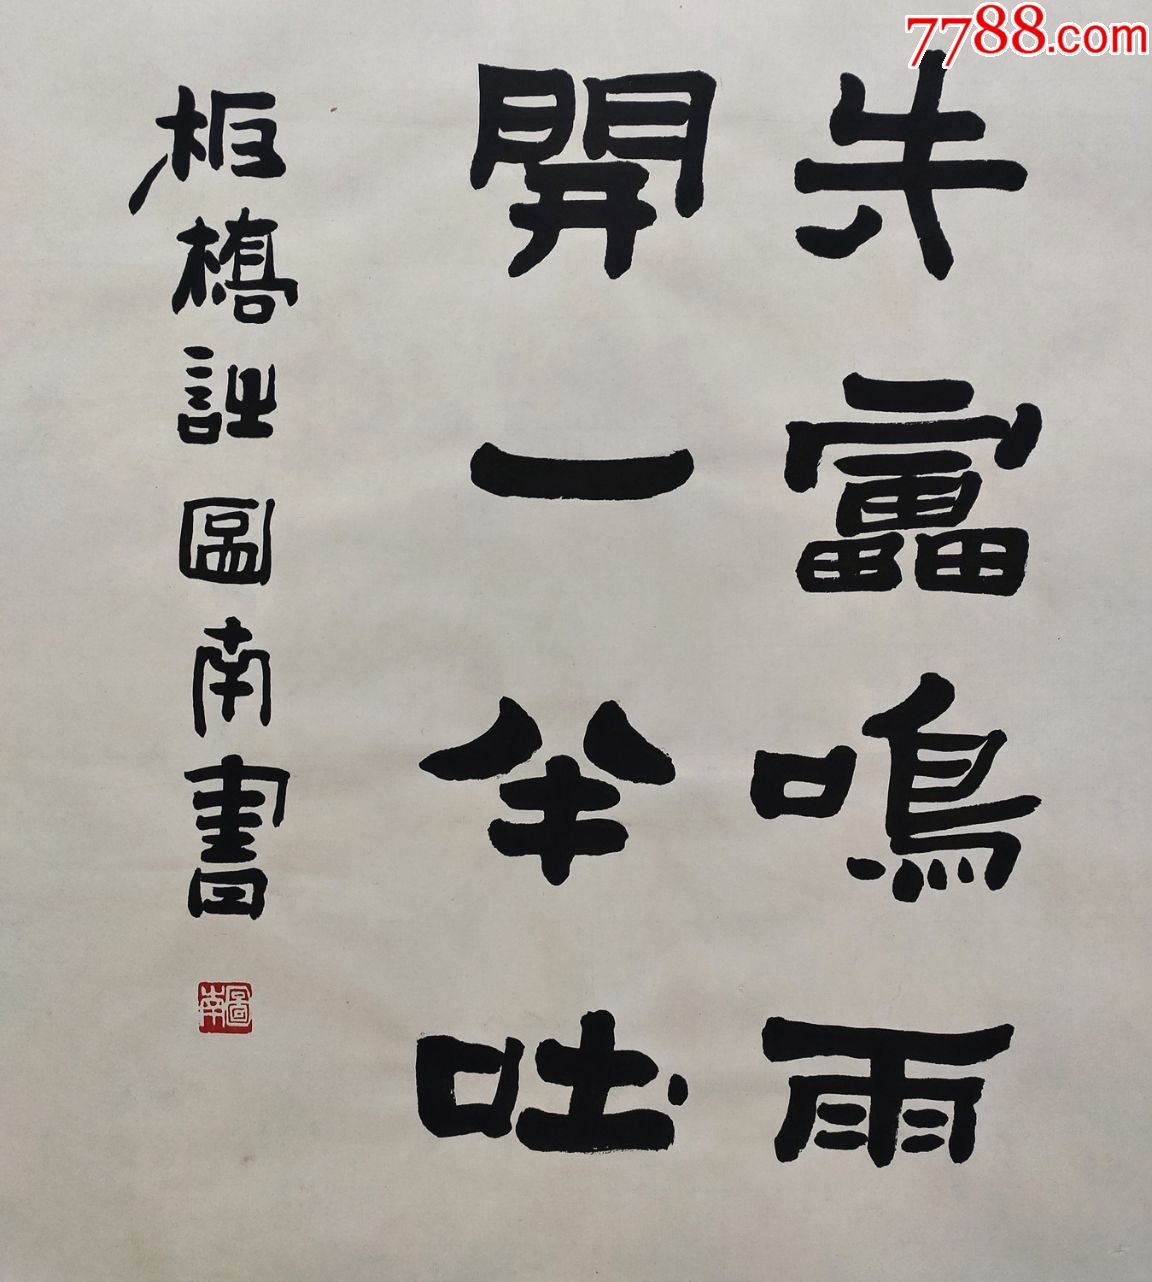 靁鳴雨
開一半吐
板橋詩圖南書
圖南
7788.com